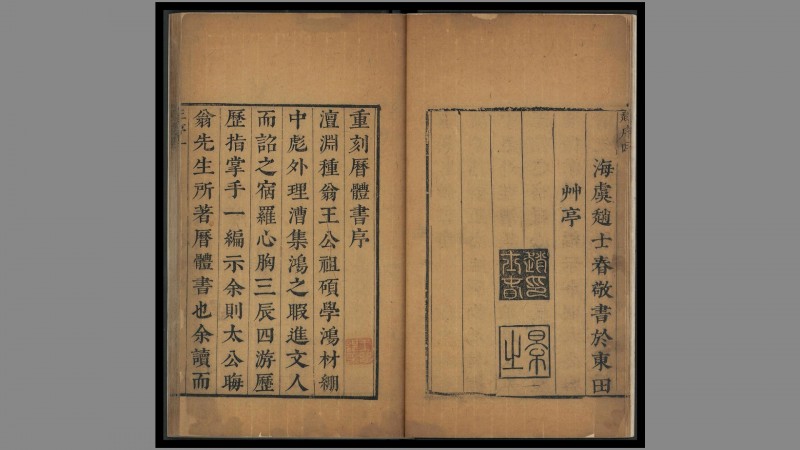 海虞趙士春敬書於東田
艸亭
重刻曆體書序
澶淵種翁王公祖碩學鴻材綳
中彪外理漕集鴻之暇進文人
而詔之宿羅心胸三辰四游歷
歷指掌手一編示余則太公晦
翁先生所著曆體書也余讀而